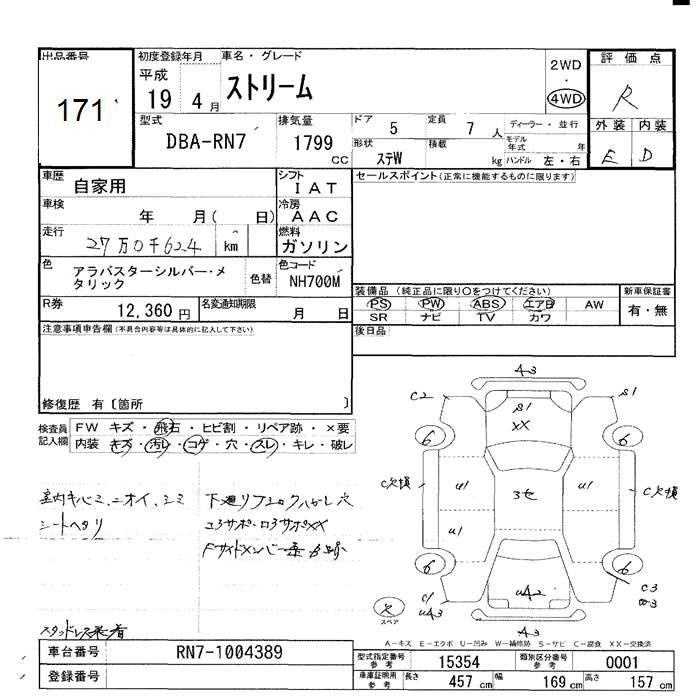 出品番号
171
初度登録年月
平成
19年4月
車名・グレード
ストリーム
2WD
・
4WD
評価点
R
型式
DBA-RN7
排気量
1799
CC
ドア
5
定員
7人
ディーラー・並行
モデル年式 年
形状
ステW
積載
kg
ハンドル 左・右
外装 内装
E D
車歴
自家用
シフト
IAT
セールスポイント(正常に機能するものに限ります)
車検
年 月( 日)
冷房
AAC
走行
27万0千624
km
燃料
ガソリン
色
アラバスターシルバー・メタリック
色替
色コード
NH700M
装備品(純正品に限り○をつけてください)
新車保証書
PS PW ABS エアB AW
SR ナビ TV カワ
有・無
R券
12,360円
名変通知期限
月 日
後日品
注意事項申告欄(不具合内容等は具体的に記入して下さい)
修復歴 有〔箇所 〕
検査員記入欄
FW キズ・飛石・ヒビ割・リペア跡・×要
内装・キズ・汚レ・コゲ・穴・スレ・キレ・破レ
室内キバミ、ニオイ、シミ
シートヘタリ
スタッドレス装着
A3
C2
S1
S1
XX
6
6
C欠損
U1
3セ
U1
C欠損
U1
6
6
C1
UA3
UA2
C3
A3
欠
スペア
A-キズ E-エクボ U-凹み W-補修跡 S-サビ C-腐食 XX-交換済
車台番号
RN7-1004389
登録番号
型式指定番号
参考
15354
類別区分番号
参考
0001
車庫証明用
参考
長さ
457cm
幅
169cm
高さ
157cm